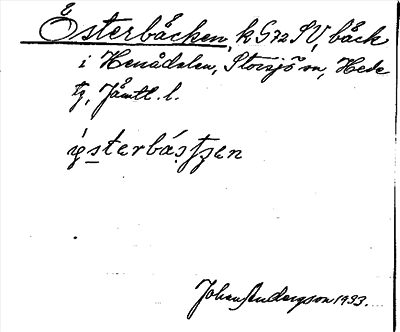 Österbäcken, k G72 SV, bäck
i Henådalen, Storsjö sn, Hede
tg, Jämtl. l.
Johan Anderzson 1933.